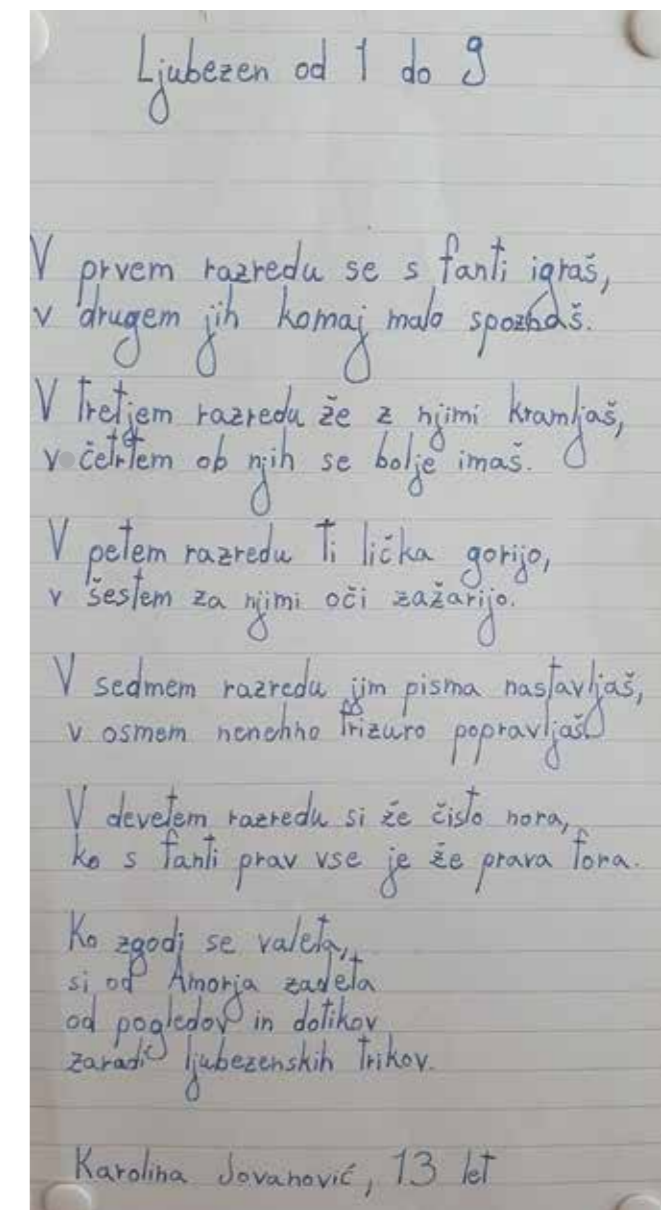 Ljubezen od 1 do 9
V prvem razredu se s fanti igraš,
v drugem jih komaj malo spoznaš.
V tretjem razredu že z njimi kramljaš,
v četrtem ob njih se bolje imaš.
V petem razredu ti lička gorijo,
v šestem za njimi oči zažarijo.
V sedmem razredu jim pisma nastavljaš,
v osmem nenehno frizuro popravljaš.
V devetem razredu si že čisto nora,
ko s fanti prav vse je že prava fora.
Ko zgodi se valeta,
si od Amorja zadeta
od pogledov in dotikov
zaradi ljubezenskih trikov.
Karolina Jovanović, 13 let